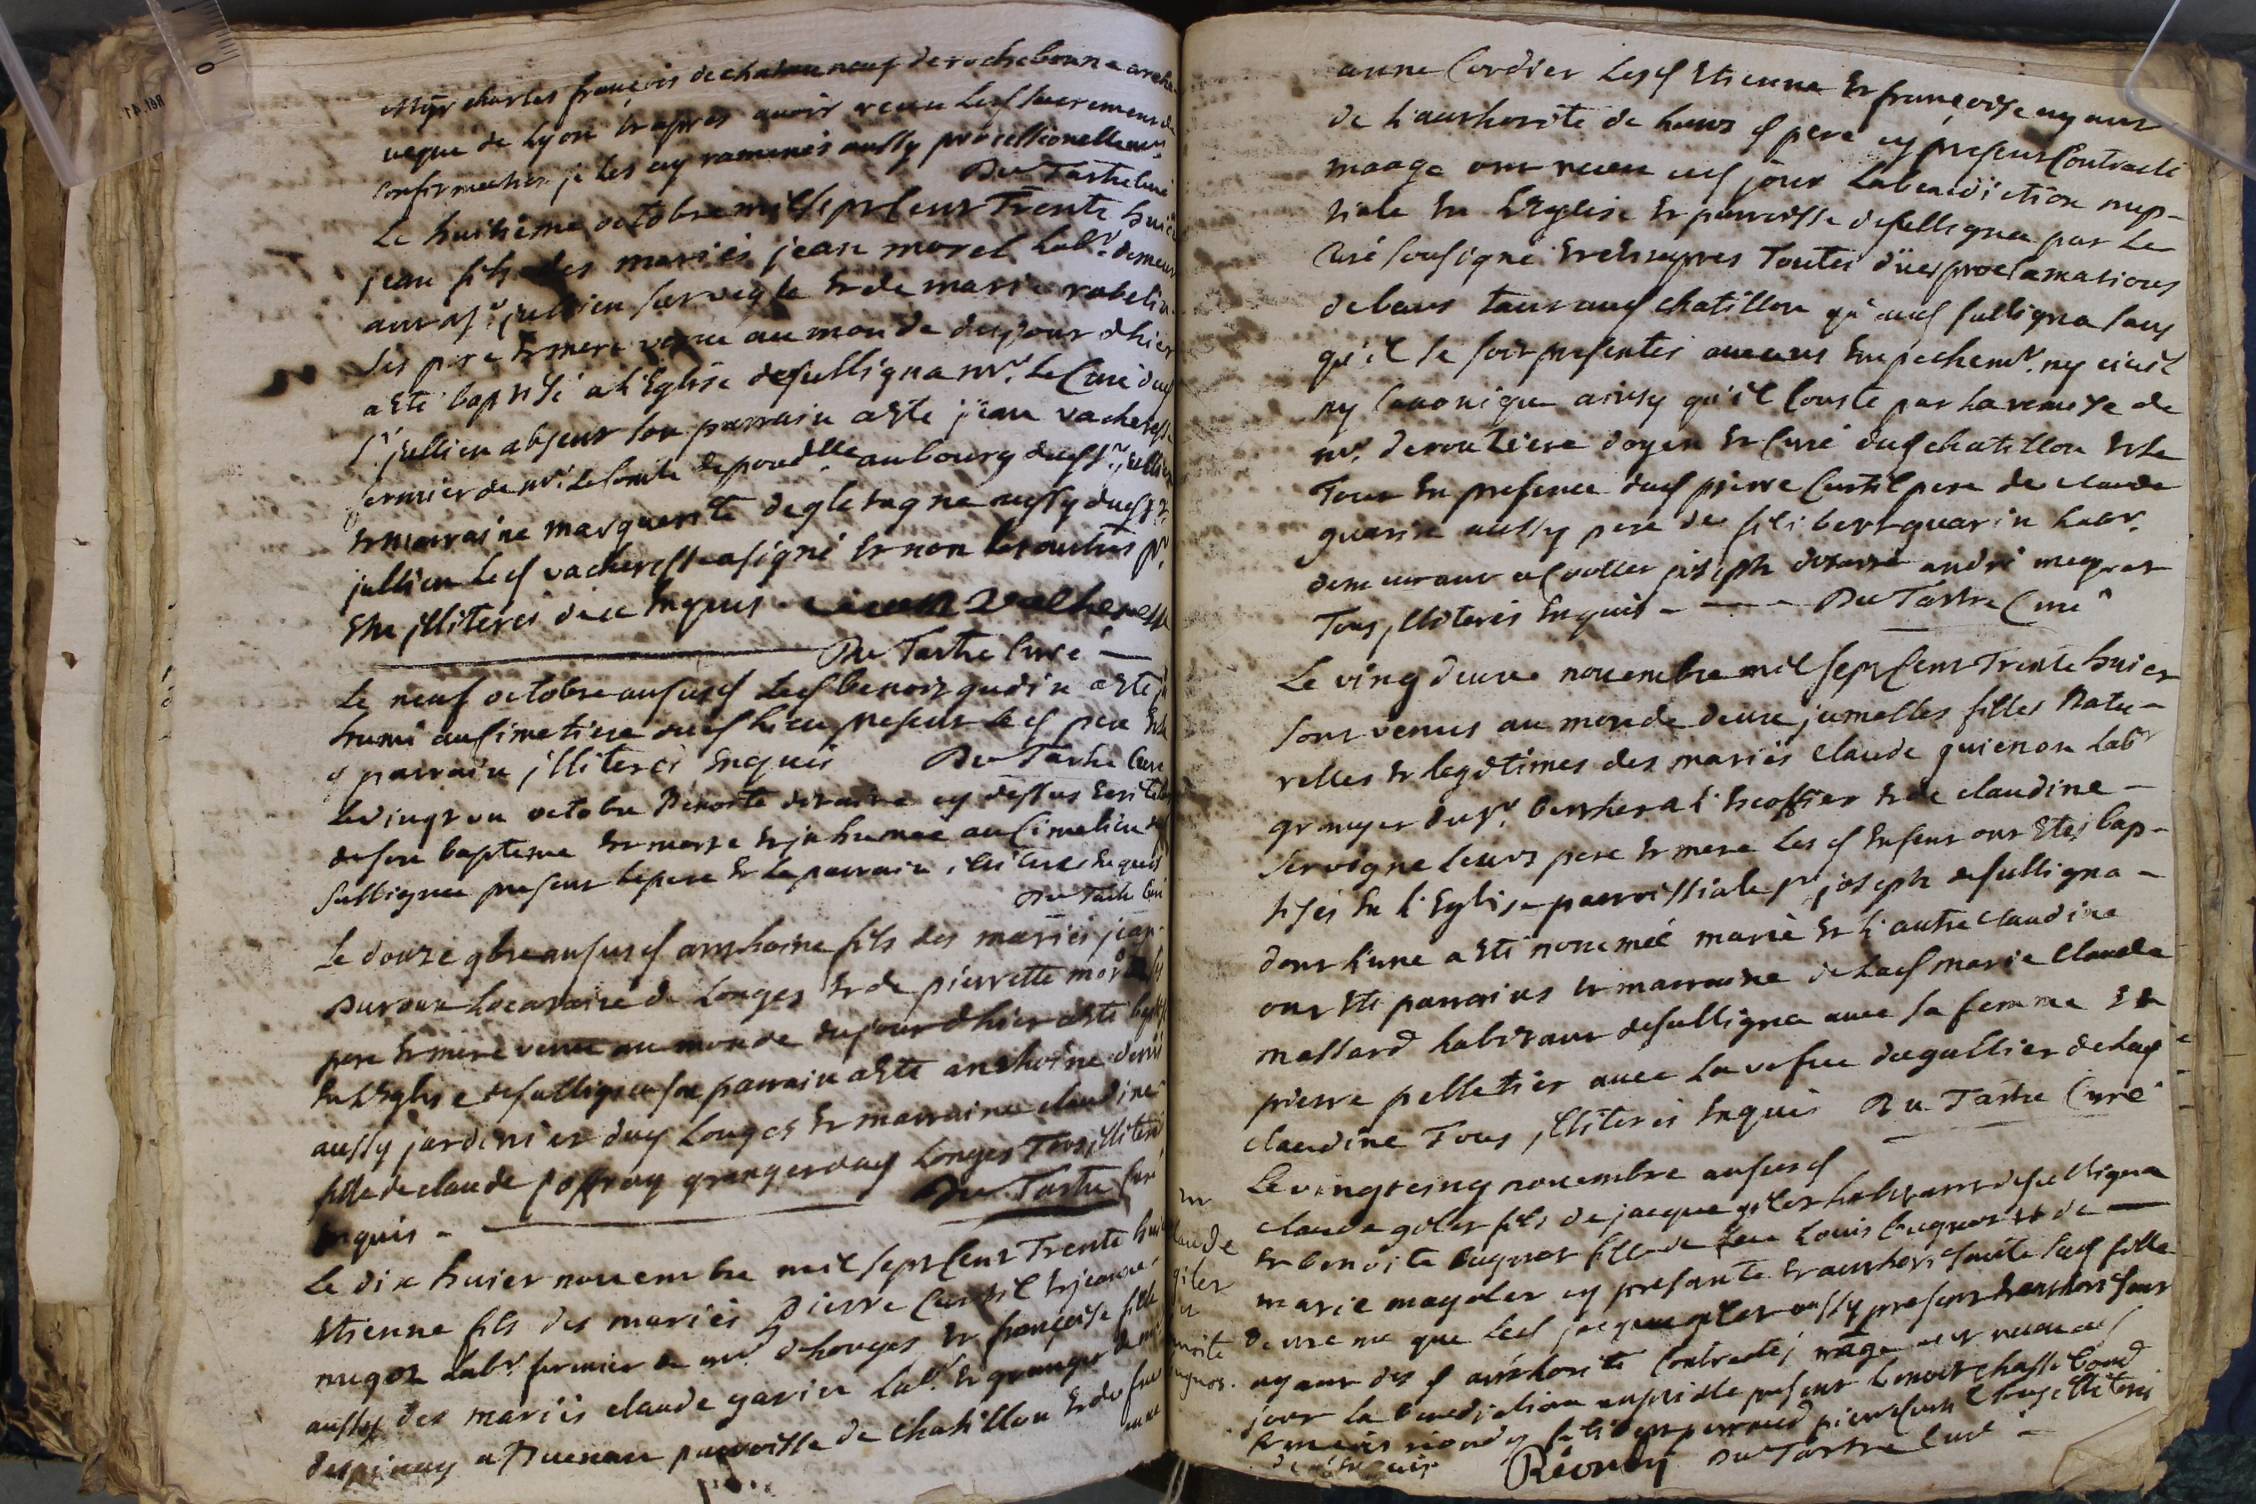 Mgr charles françois de chateauneuf de rochebonne arche
veque de Lyon Et apres avoir receu led sacrement de
confirmation je les ay ramenés aussy processionellemt
Du Tartre curé
Le huitième octobre mil sept Cent Trente huict
jean fils des mariés jean morel Labr. demeur
ant a st jullien sur veyle Et de marie rabelin
ses pere Et mere venu au monde du jour d'hier
a Eté baptisé a l'Eglise de sulligna mr. Le Curé dud
st. jullien absent son parrain a Eté jean vacheresse
fermier de mr. Le Comte au bourg dud st. jullien
Et marraine marguerite aussy dud st.
jullien Led vacheresse a signé Et non les autres pr
Etre illiterés de ce Enquis jean Vacheresse
Du Tartre Curé
Le neuf octobre ansusd Led benoit gudin a Eté in
humé au Cimetiere dud lieu present led pere Et le
d parrain illiterés Enquis Du Tartre Curé
Le vingt un octobre Benoite cy dessus
de son bapteme Et morte Et inhumée au Cimetiere de
Sulligna present le pere Et le parrain illiterés Enquis
Du Tartre Curé
Le douze 9bre ansusd anthoine fils des mariés jean
Duroux Locataire de Longes Et de pierrette morel ses
pere Et mere venu au monde du jour d'hier a Eté baptisé
En L'Eglise de sulligna son parrain a Eté anthoine
aussy jardinier dud Longes Et marraine claudine
fille de claude Joffray granger dud Longes Tous illiterés
Enquis - Du Tartre Curé
Le dix huict novembre mil sept Cent Trente huict
Etienne fils des mariés Pierre Curtil Et jeanne
nugon Labr. fermier de mr. d'honges Et françoise fille
aussy des mariés claude garin Labr. Et granger de mr
despiney a parroisse de Chatillon Et de feue
anne Cordier Lesd Etienne Et françoise ayant
de L'authorité de Leurs d pere cy present Contracté
maage ont receu ced jour La benediction nup-
tiale En L'Eglise Et parroisse de sulligna par Le
Curé soussigné Et ce apres Toutes düesproclamations
de bans tant aud chatillon qu'aud sulligna sans
qu'il se soit presentés aucuns Empechemt. ny civil
ny Canonique ainsy qu'il Conste par La remise de
mr. deroutiere doyen Et Curé dud chatillon Et le
Tout En presence dud pierre Curtil pere de claude
guarin aussy pere de filibert guarin Labr.
demeurant a joseph andré megret
Tous illiterés Enquis - Du Tartre Curé
Le ving deuxe novembre mil sept Cent Trente huict
sont venus au monde deux jumelles filles Natu-
relles Et legitimes des mariés claude guienon Labr
granger du sr. a l'Escoffier Et de claudine -
servigne leurs pere Et mere Les d Enfent ont Etes bap-
tisés En L'Eglise parroissiale st joseph de sulligna -
dont L'une a Eté nommée marie Et L'autre claudine
ont Eté parrains Et marraine de Lad marie Claude
mallard habitant de sulligna avec sa femme Et
pierre pelletier avec La vefue de gallier de Lad
claudine Tous illiterés Enquis Du Tartre Curé
Le vingt cinq novembre ansusd
claude giler fils de jacque giler habitant de sulligna
Et benoite bugnot fille de feu Louis bugnot Et de
marie mayoler cy presante Et authorisante sad fille
de meme que Led jacque giler aussy present Et authorisant
ayant desd authorité Contractés mage ont receu ced
jour la benediction nuptialle present benoit chassiboud
françois riondy filibert perraud pierre curtil Tous illiterés
de ce Enquis Riondy Du Tartre Curé
mr
claude
giler
Et
benoite
bugnot.